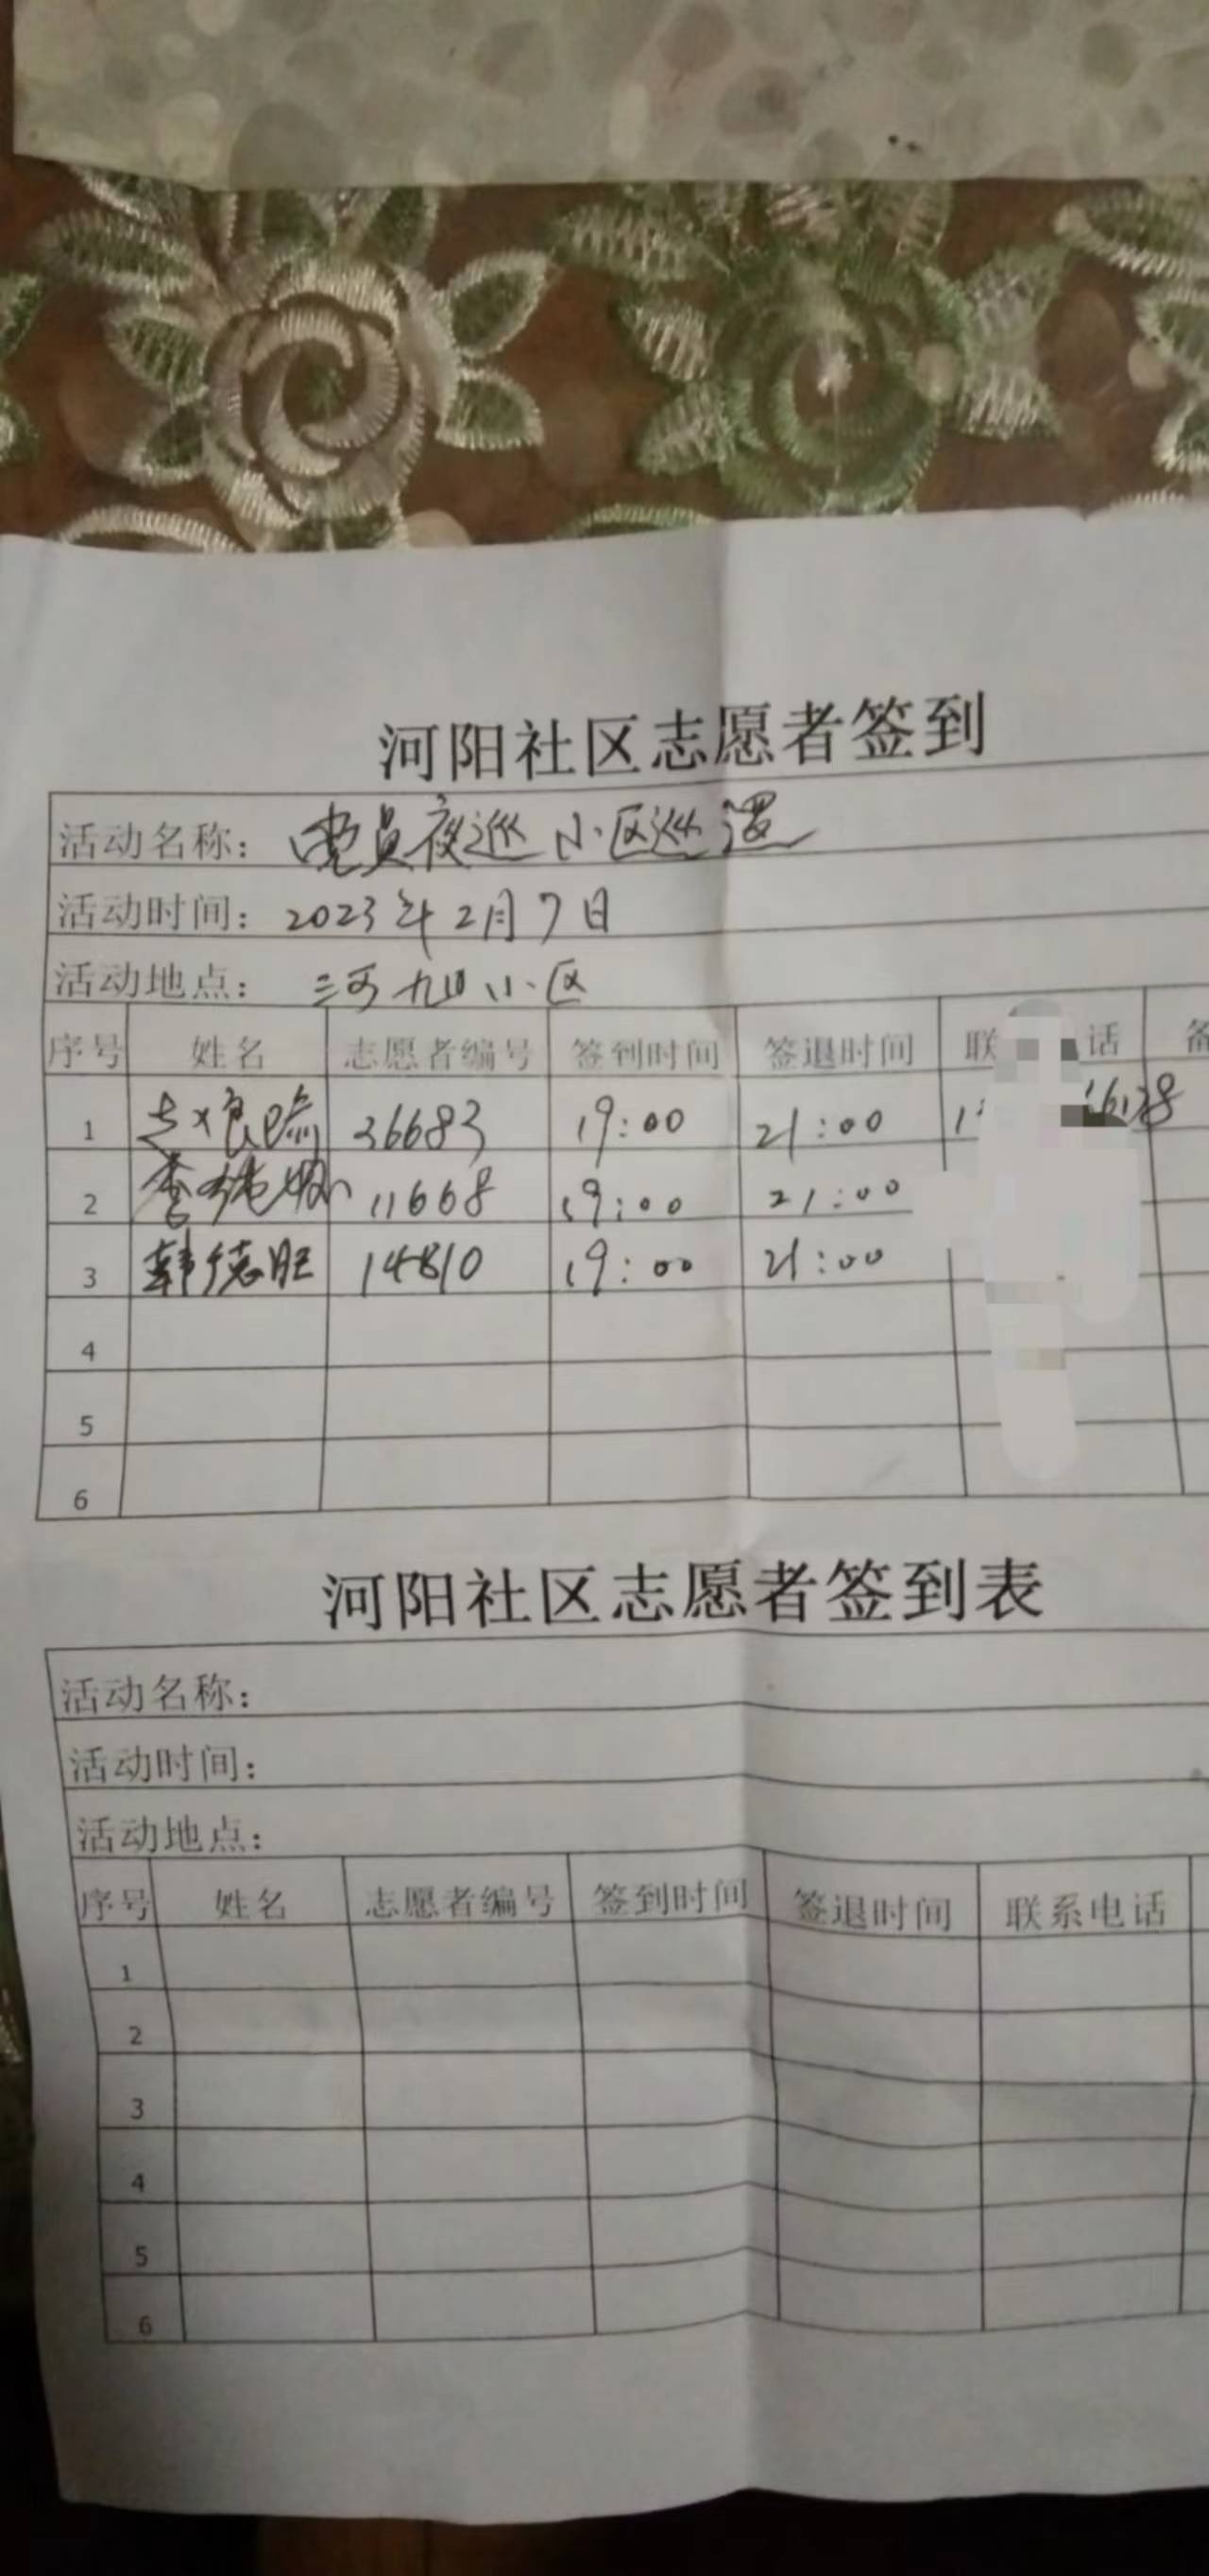 河阳社区志愿者签到
活动名称：党员夜巡 小区巡逻
活动时间：2023年2月7日
活动地点：三河九四小区
序号 姓名 志愿者编号 签到时间 签退时间 联 话 备
1 赵良 36683 19:00 21:00
2 李 11668 19:00 21:00
3 韩德胜 14810 19:00 21:00
4
5
6
河阳社区志愿者签到表
活动名称：
活动时间：
活动地点：
序号 姓名 志愿者编号 签到时间 签退时间 联系电话
1
2
3
4
5
6